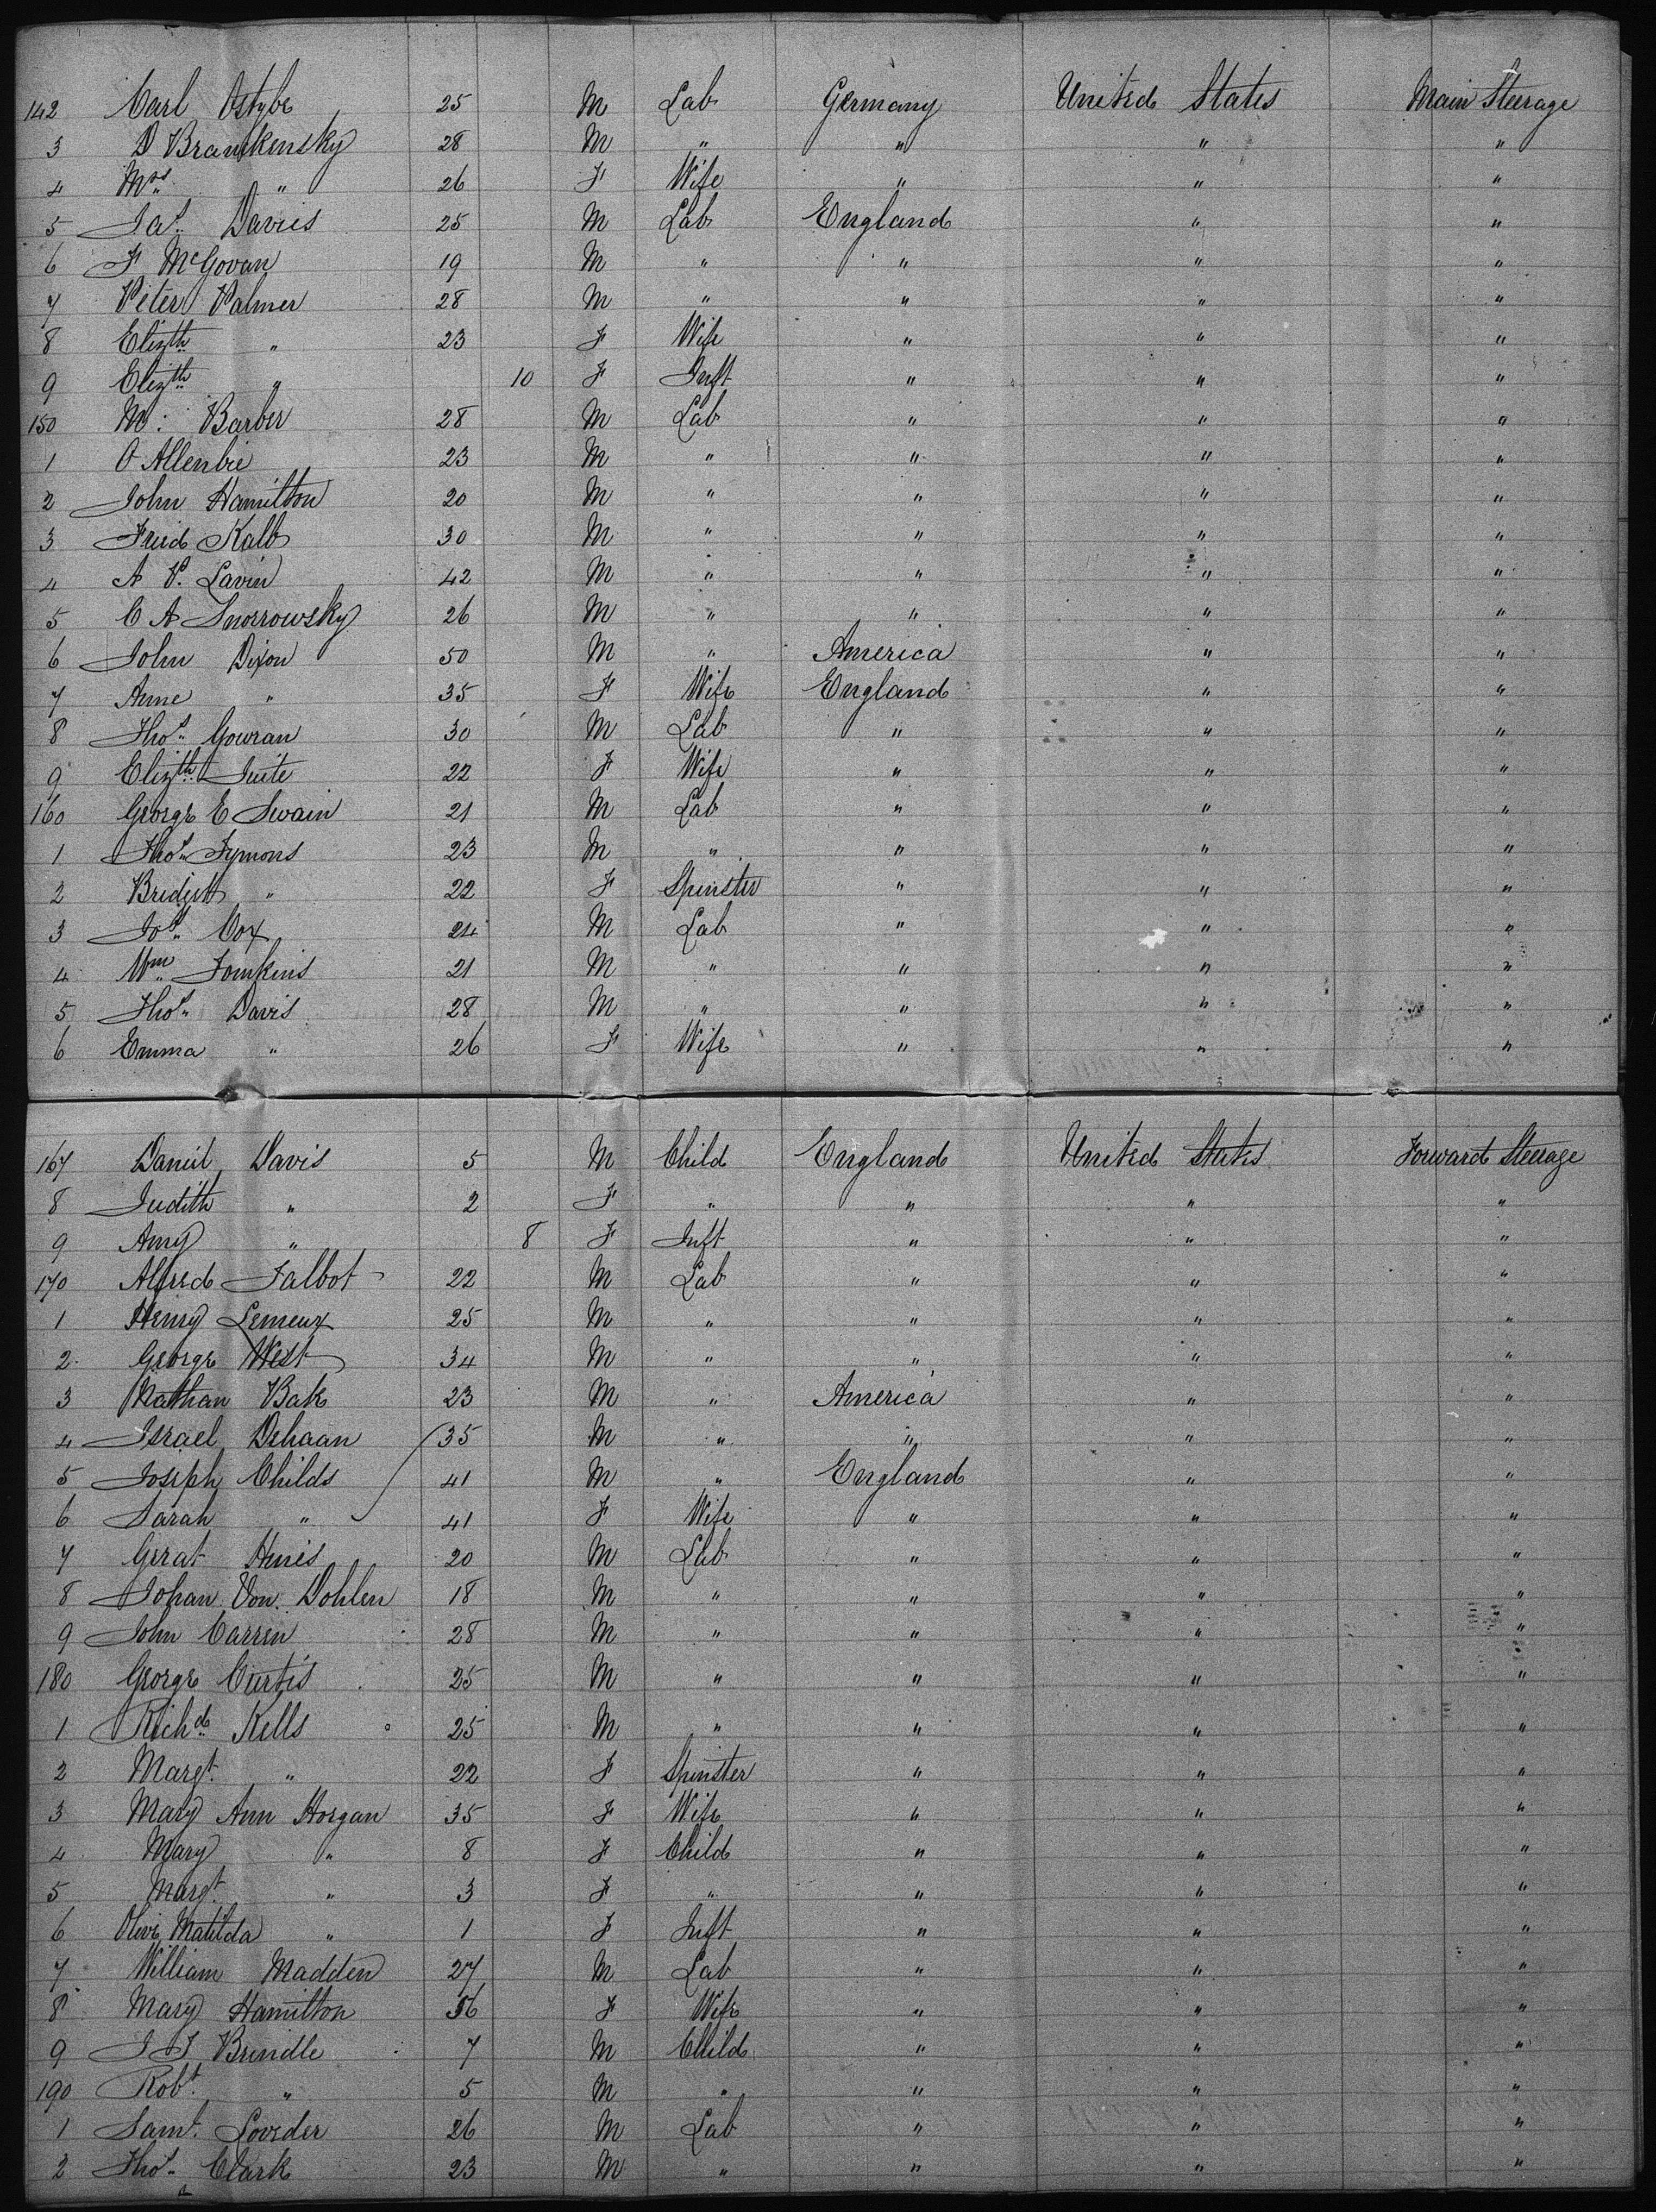 142 Carl Ostybe 25 M Lab Germany United States Main Steerage
3 D Branskensky 28 M " " " "
4 Mrs " 26 F Wife " " "
5 Jas. Davies 25 M Lab England " "
6 F McGovan 19 M " " " "
7 Peter Palmer 28 M " " " "
8 Elizth " 23 F Wife " " "
9 Elizth " 10 F Inft " " "
150 M: Barber 28 M Lab " " "
1 O Allenbie 23 M " " " "
2 John Hamilton 20 M " " " "
3 Fried Kalb 30 M " " " "
4 A P. Lavin 42 M " " " "
5 C A Snorrowsky 26 M " " " "
6 John Dixon 50 M " America " "
7 Anne " 35 F Wife England " "
8 Thos. Gowran 30 M Lab " " "
9 Elizth Suite 22 F Wife " " "
160 George E Swain 21 M Lab " " "
1 Thos. Symons 23 M " " " "
2 Bridgett " 22 F Spinster " " "
3 Jos. Cox 24 M Lab " " "
4 Wm Tomkins 21 M " " " "
5 Thos. Davis 28 M " " " "
6 Emma " 26 F Wife " " "
167 Daniel Davis 5 M Child England United States Forward Steerage
8 Judith " 2 F " " " "
9 Amy " 8 F Inft " " "
170 Alfred Talbot 22 M Lab " " "
1 Henry Lemeux 25 M " " " "
2 George West 34 M " " " "
3 Nathan Bak 23 M " America " "
4 Israel Dehaan 35 M " " " "
5 Joseph Childs 41 M " England " "
6 Sarah " 41 F Wife " " "
7 Gerat Hines 20 M Lab " " "
8 Johan Von. Dohlen 18 M " " " "
9 John Carren 28 M " " " "
180 George Curtis 25 M " " " "
1 Richd. Kells 25 M " " " "
2 Margt. " 22 F Spinster " " "
3 Mary Ann Horgan 35 F Wife " " "
4 Mary " 8 F Child " " "
5 Margt. " 3 F " " " "
6 Olive Matilda " 1 F Inft " " "
7 William Madden 27 M Lab " " "
8 Mary Hamilton 56 F Wife " " "
9 J J Brindle 7 M Child " " "
190 Robt. " 5 M " " " "
1 Saml. Loveder 26 M Lab " " "
2 Thos. Clark 23 M " " " "